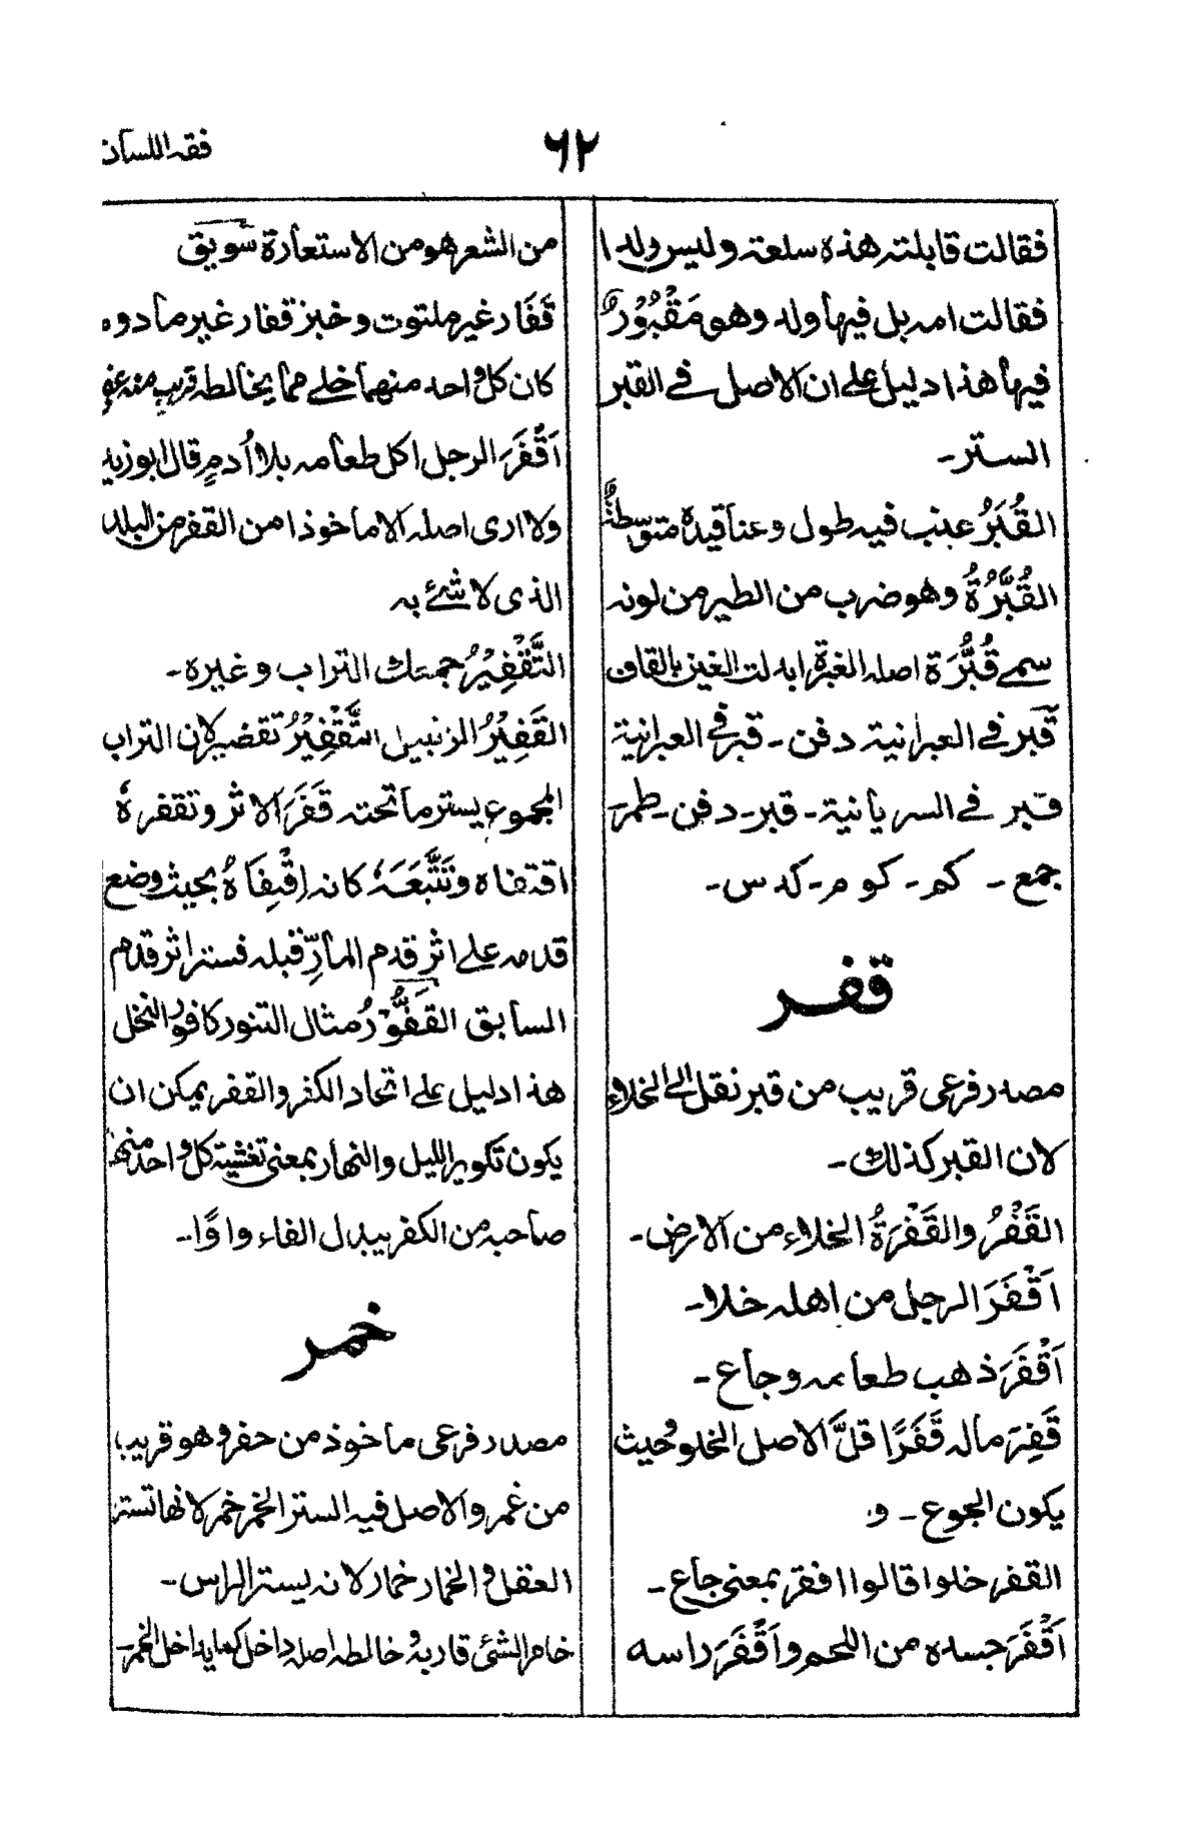 فقہ اللسان
٦٢
فقالت قابلتہ ھذہ سلعۃ ولیس ولدا
فقالت امہ بل فیھا ولد وھو مَقْبُوْرٌ
فیھا ھذا دلیل علی ان الاصل فے القبر
الستر۔
القُبَرُ عنب فیہ طول وعناقیدہ متوسّطۃٌ
القُبَّرَۃُ وھو ضرب من الطیر من لونہ
سمی قُبَّرَۃ اصلہ الغبرۃ ابدلت الغین بالقاف
قبر فے العبرانیۃ دفن۔ قبر فی العبرانیۃ
قبر فے السریانیۃ۔ قبر۔ دفن۔ طمر۔
جمع۔ کم۔ کوم۔ کدس۔
قفر
مصدر فرعی قریب من قبر نقل الی الخلاء
لان القبر کذلک۔
القَفْرُ والقَفْرَۃُ الخلاء من الارض۔
اَقْفَرَ الرجل من اھلہ خلا۔
اَقْفَرَ ذھب طعامہ وجاع۔
قَفِرَ مالہ قَفَرًا قلَّ الاصل الخلو وحیث
یکون الجوع۔ و
القفر خلوا قالوا اقفر بمعنی جاع۔
اَقْفَرَ جسدہ من اللحم واَقْفَرَ راسہ
من الشعر ھو من الاستعارۃ سویق
قَفَار غیر ملتوت وخبز قفار غیر مادوم
کان کل واحد منھما خلے مما یخالطہ قریب منہ
اَقْفَرَ الرجل اکل طعامہ بلا اُدمٍ قال ابو زید
ولا اری اصلہ الا ماخوذا من القفر من البلد
الذی لا شئ بہ
التَّقْفِیْرُ جمعک التراب وغیرہ۔
القَفِیْرُ الزنبیل التَّقْفِیْرُ تقضیر لان التراب
المجموع یستر ما تحتہ قَفَرَ الاثر وتقفرہٗ
اقتفاہ وتَتَّبَعَہٗ کانہ اِقْتِفَاہُ بحیث وضع
قدمہ علی اثر قدم المارِّ قبلہ فستر اثر قدم
السابق القَفُّوْرُ مثال التنور کافور النخل
ھذا دلیل علی اتحاد الکفر والقفر یمکن ان
یکون تکویر اللیل والنھار بمعنی تغشیۃ کل واحد منھما
صاحبہ من الکفر ببدل الفاء واوًا۔
خمر
مصدر فرعی ماخوذ من حفر وھو قریب
من غمر والاصل فیہ الستر الخمر خمر لانھا تستر
العقل والخمار خمار لانہ یستر الراس۔
خامر الشئ قاربہ وخالطہ اصلہ داخل کما یداخل الخمر۔